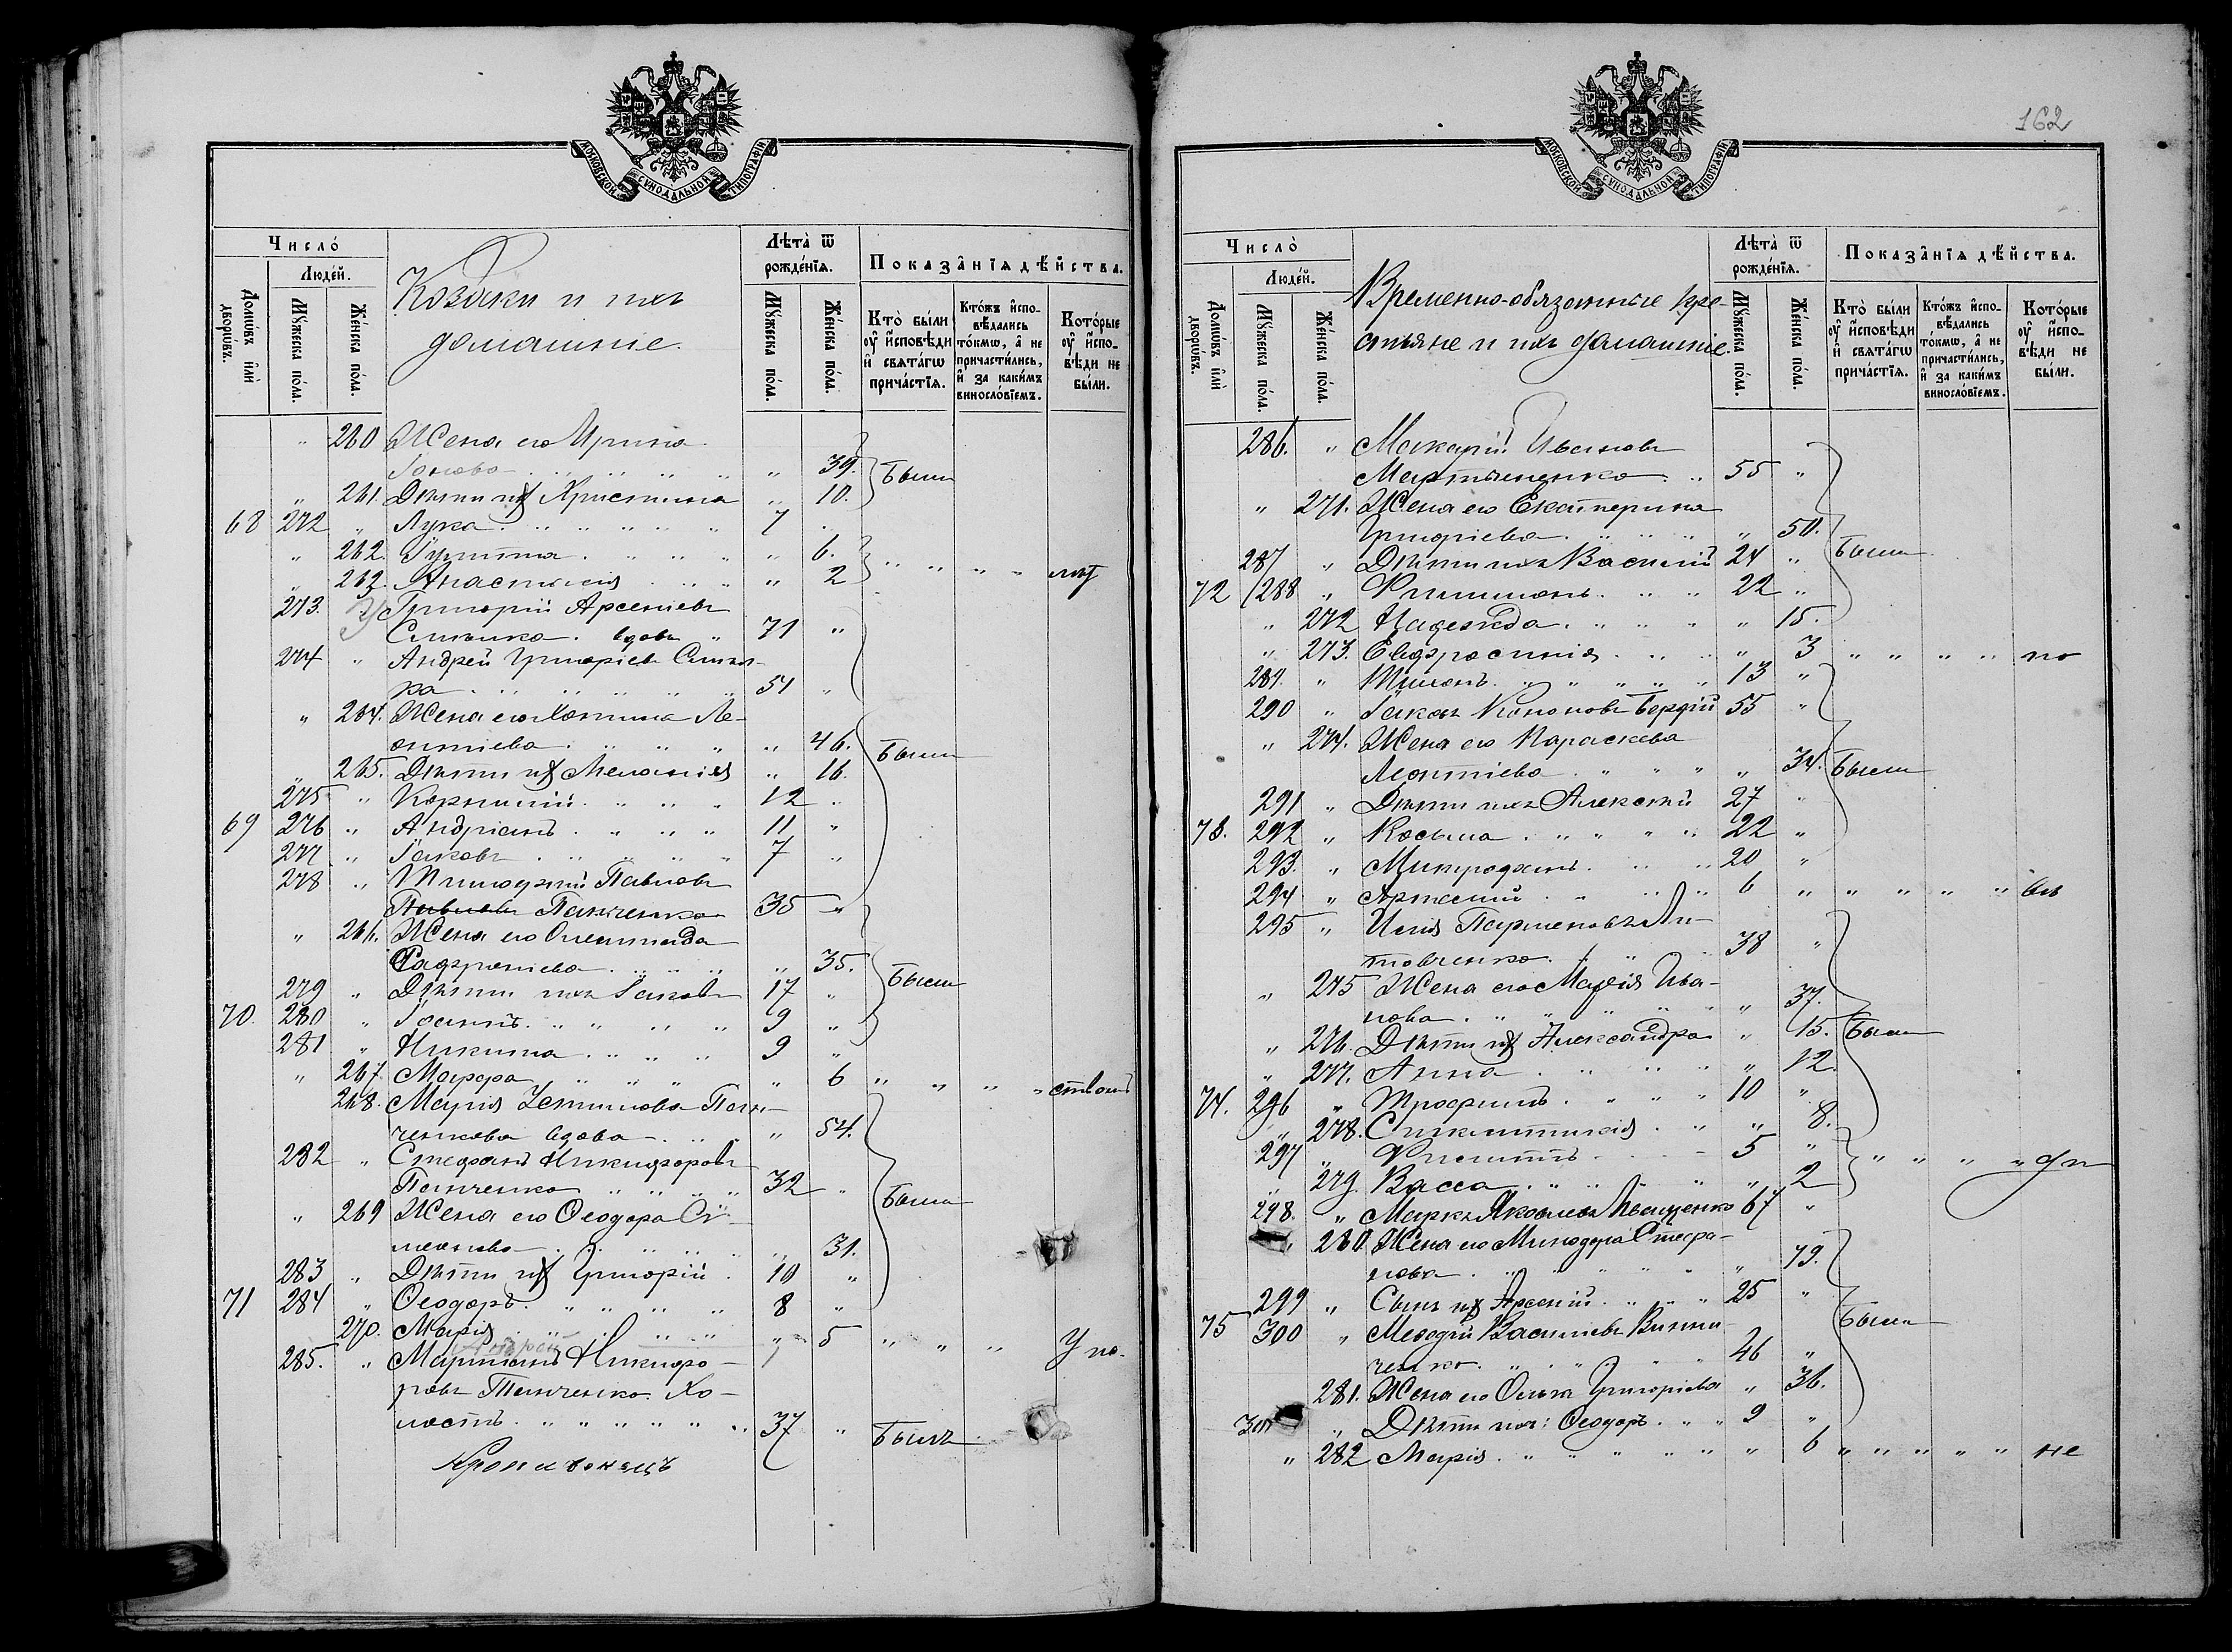 МОСКОВСКОЙ СѴНОДАЛЬНОЙ ТИПОГРАФІИ
Число̀
Люде́й.
Домѡ́въ и҆лѝ дворѡ́въ.
Мꙋ́жеска по́ла.
Же́нска по́ла.
Козаки и ихъ
домашніе.
Лѣта̀ ѿ рожде́нїѧ.
Мꙋ́жеска по́ла.
Же́нска по́ла.
Показа̂нїѧ дѣ́йства.
Кто̀ бы́ли ᲂу҆ и҆сповѣ́ди и҆ свѧта́гѡ прича́стїѧ.
Кто́жъ и҆сповѣ́дались то́кмѡ, а҆ не причасти́лись, и҆ за каки́мъ винослові́емъ.
Кото́рые ᲂу҆ и҆сповѣ́ди не бы́ли.
" 260 Жена его Ирина
" 39. Были
" 261. Дѣти ихъ Христина " 10.
68 272 " Лука 7 "
" 262. Гулитта " 6.
" 263. Анастасія " 2 " " " " лѣт
273. Григорій Арсеніевъ
вдовъ " 71 "
274 " Андрей Григоріевъ
ка 51 "
" 264. Жена его Хотина Ле-
онтіева " 46. Были
" 265. Дѣти ихъ Меланія " 16.
275 " Корнилій 12 "
69 276 " Андріанъ 11 "
277 " Іаковъ 7 "
278 " Тимофей Павловъ
Павловъ Панченко 35 "
" 266. Жена его Олимпіада
" 35. Были
279 " Дѣти ихъ Іаковъ 17 "
70. 280 " Іоаннъ 9 "
281 " Никита 9 "
" 267. Марфа " 6 " " " " ствомъ
268. Марія Устинова Пан-
ченкова вдова " 54.
282 " Стефанъ Никифоровъ
Панченко 32 " Были
" 269 Жена его Ѳеодора Си-
" 31.
283 " Дѣти ихъ Григорій 10 "
71 284 " Ѳеодоръ 8 "
270. Марія " 5 " " " У по-
Андрей
285. " Мартинъ Никифо-
ровъ Панченко Хо-
лостъ 37 " Былъ

162
МОСКОВСКОЙ СѴНОДАЛЬНОЙ ТИПОГРАФІИ
Число̀
Люде́й.
Домѡ́въ и҆лѝ дворѡ́въ.
Мꙋ́жеска по́ла.
Же́нска по́ла.
Временно-обязанные кре-
стьяне и ихъ домашніе.
Лѣта̀ ѿ рожде́нїѧ.
Мꙋ́жеска по́ла.
Же́нска по́ла.
Показа̂нїѧ дѣ́йства.
Кто̀ бы́ли ᲂу҆ и҆сповѣ́ди и҆ свѧта́гѡ прича́стїѧ.
Кто́жъ и҆сповѣ́дались то́кмѡ, а҆ не причасти́лись, и҆ за каки́мъ винослові́емъ.
Кото́рые ᲂу҆ и҆сповѣ́ди не бы́ли.
286. " Макарій Ивановъ
Мартыненко 55 "
" 271. Жена его Екатерина
Григоріева " 50.
287 " Дѣти ихъ Василій 24 " Были
72 288 " Филимонъ 22 "
" 272 Надежда " 15.
" 273. Евфросинія " 3 " " " " по
289. " Тимонъ 13 "
290 " Іаковъ Кононовъ Бердій 55 "
" 274. Жена его Параскева
Леонтіева " 34. Были
291 " Дѣти ихъ Алексѣй 27 "
73. 292 " Косьма 22 "
293. " Митрофанъ 20 "
294 " Артемій 6 " " " " "
295 " Илія Парменовъ Ли-
товченко 38 "
" 275 Жена его Марія Ива-
нова " 37.
" 276. Дѣти ихъ Александра " 15. Были
" 277. Анна " 12.
74. 296 " Трофимъ 10 "
" 278. Синклитикія " 8.
297 " Филиппъ 5 "
" 279. Васса " 2 " " " "
298. " Маркъ Яковлевъ Иващенко 67 "
" 280. Жена его Минодора Стефа-
нова "
299 " Сынъ ихъ Арсеній 25 "
75 300 " Меѳодій Васильевъ Винни-
ченко 46 " Были
281. Жена его Ольга Григоріева " 36.
301 " Дѣти ихъ: Ѳеодоръ 9 "
" 282 Марія " 6 " " " " " не